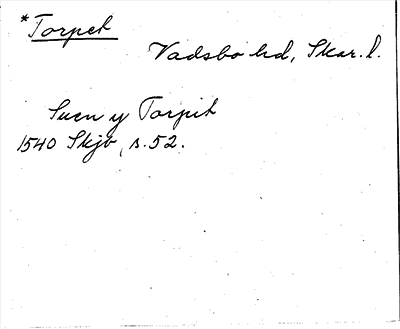 *Torpet
Vadsbo hd, Skar. l.
Suen y Torpit
1540 Skjb, s. 52.